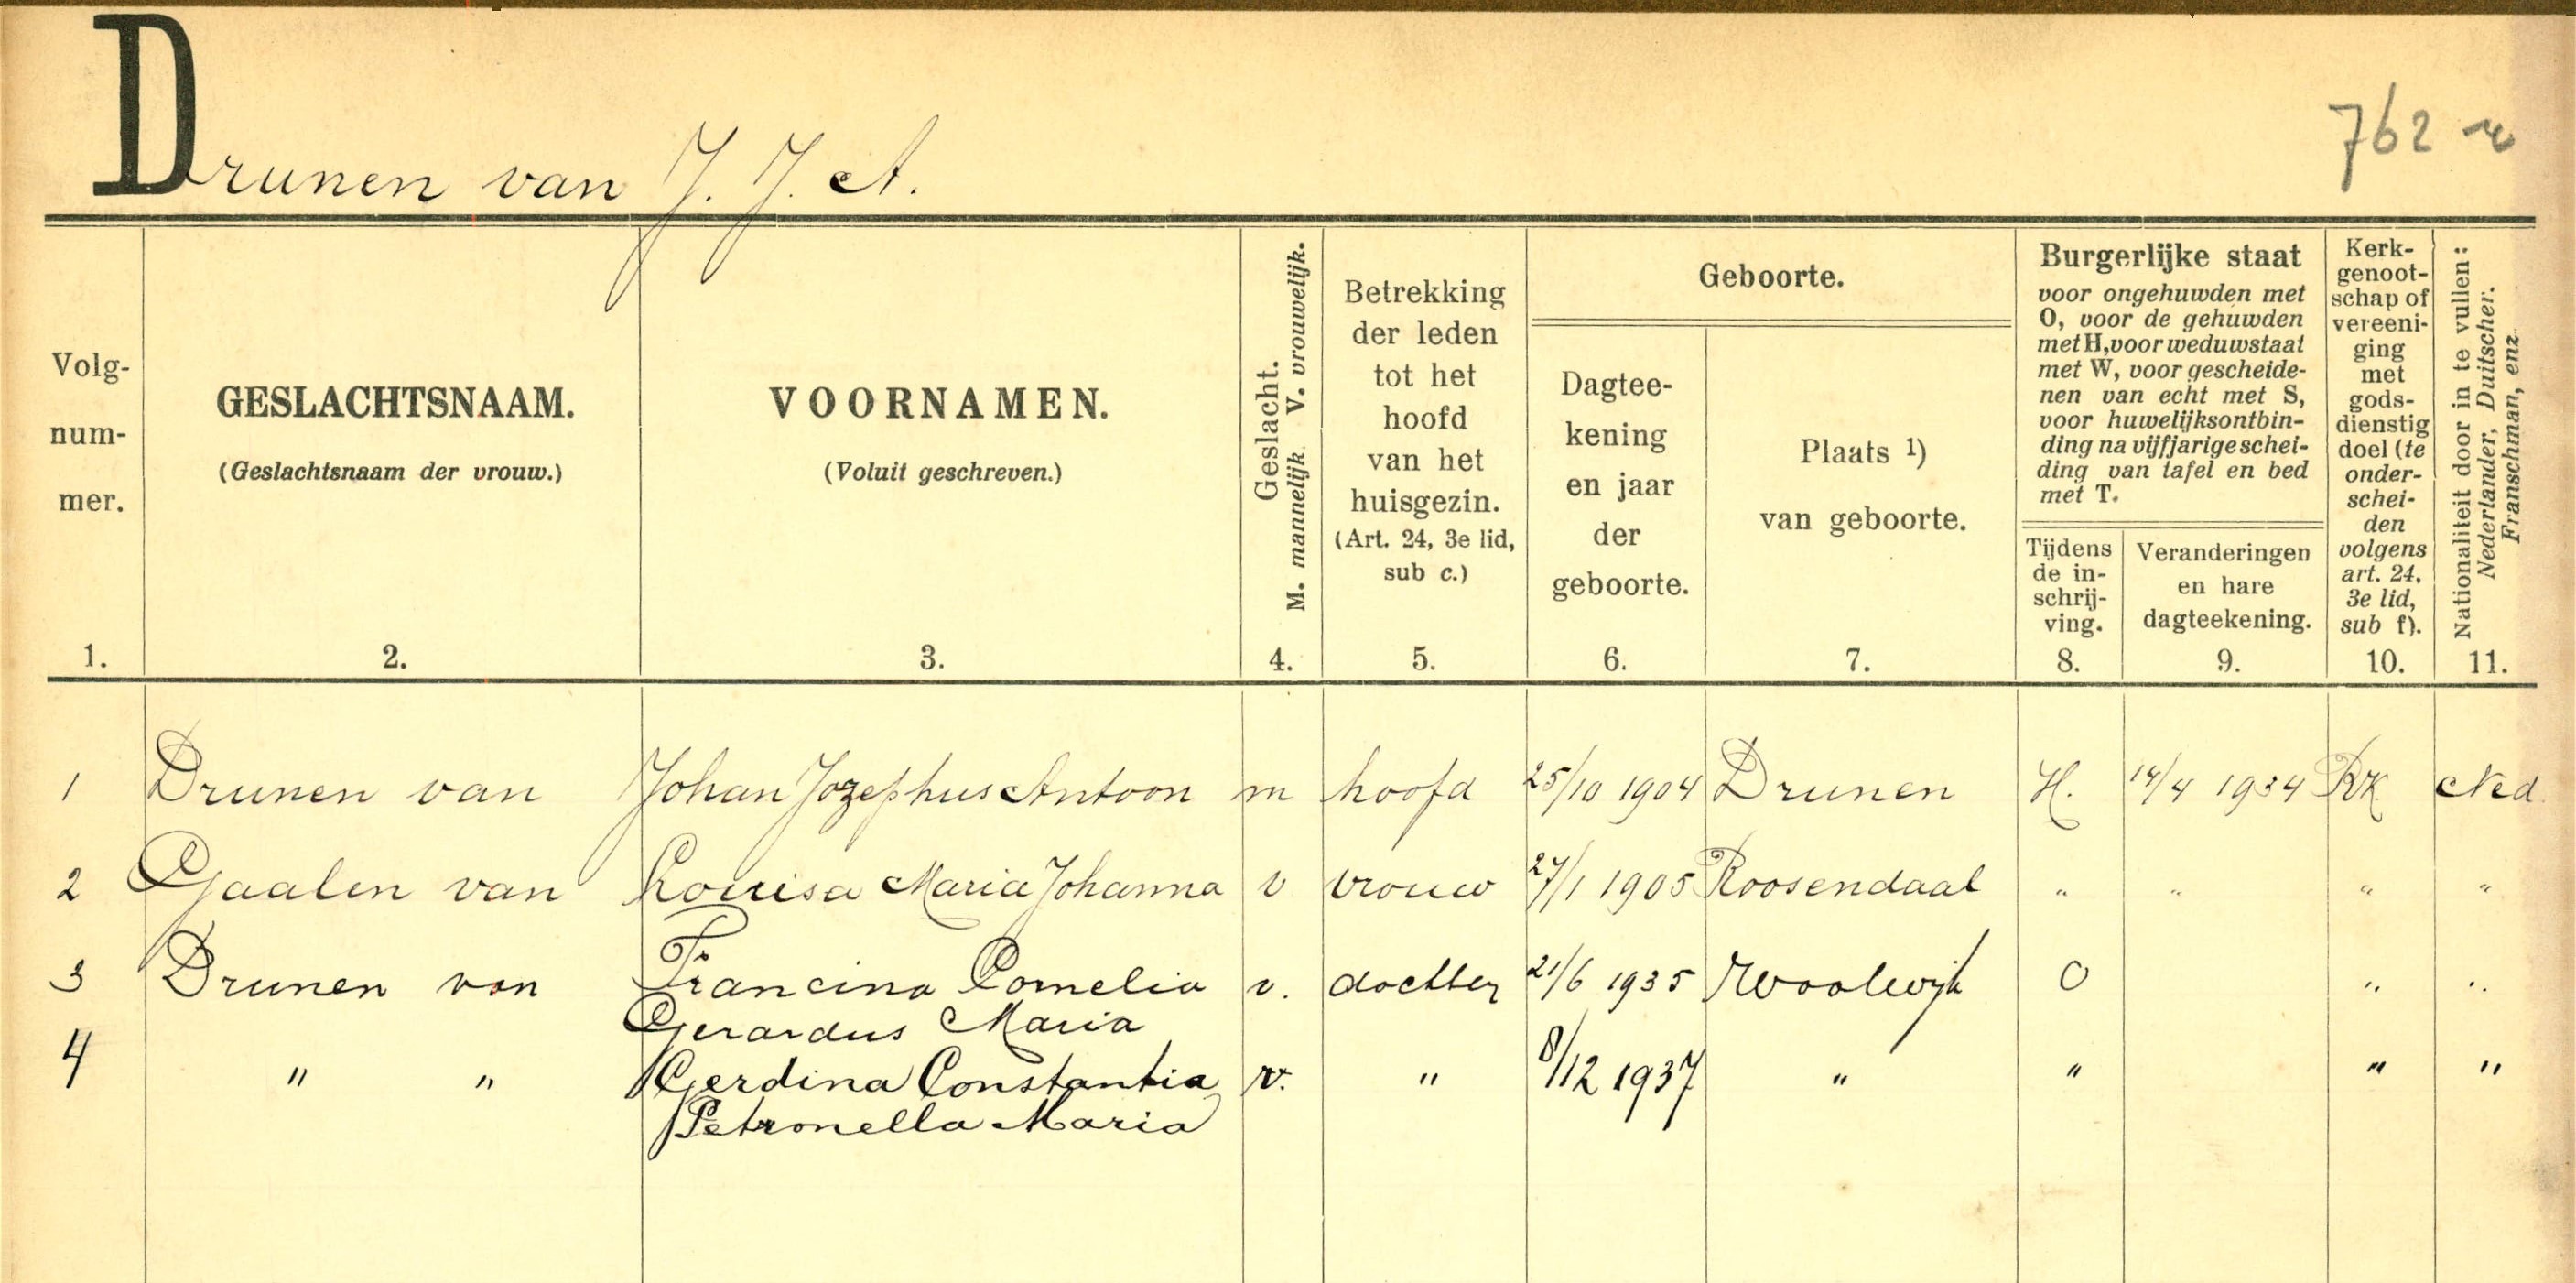 Drunen van J. J. A.
762 r
Volg-
num-
mer.
1.
GESLACHTSNAAM.
(Geslachtsnaam der vrouw.)
2.
VOORNAMEN.
(Voluit geschreven.)
3.
Geslacht.
M. mannelijk V. vrouwelijk.
4.
Betrekking
der leden
tot het
hoofd
van het
huisgezin.
(Art. 24, 3e lid,
sub c.)
5.
Geboorte.
Dagtee-
kening
en jaar
der
geboorte.
6.
Plaats 1)
van geboorte.
7.
Burgerlijke staat
voor ongehuwden met
O, voor de gehuwden
met H, voor weduwstaat
met W, voor gescheide-
nen van echt met S,
voor huwelijksontbin-
ding na vijfjarige schei-
ding van tafel en bed
met T.
Tijdens
de in-
schrij-
ving.
8.
Veranderingen
en hare
dagteekening.
9.
Kerk-
genoot-
schap of
vereeni-
ging
met
gods-
dienstig
doel (te
onder-
schei-
den
volgens
art. 24,
3e lid,
sub f).
10.
Nationaliteit door in te vullen:
Nederlander, Duitscher.
Franschman, enz.
11.
1 Drunen van Johan Jozephus Antoon m hoofd 25/10 1904 Drunen H. 14/4 1934 RK Ned.
2 Gaalen van Louisa Maria Johanna v vrouw 27/1 1905 Roosendaal " " " "
3 Drunen van Francina Cornelia v. dochter 21/6 1935 Waalwijk O " "
Gerardus Maria
4 " " Gerdina Constantia v. " 8/12 1937 " " " "
Petronella Maria